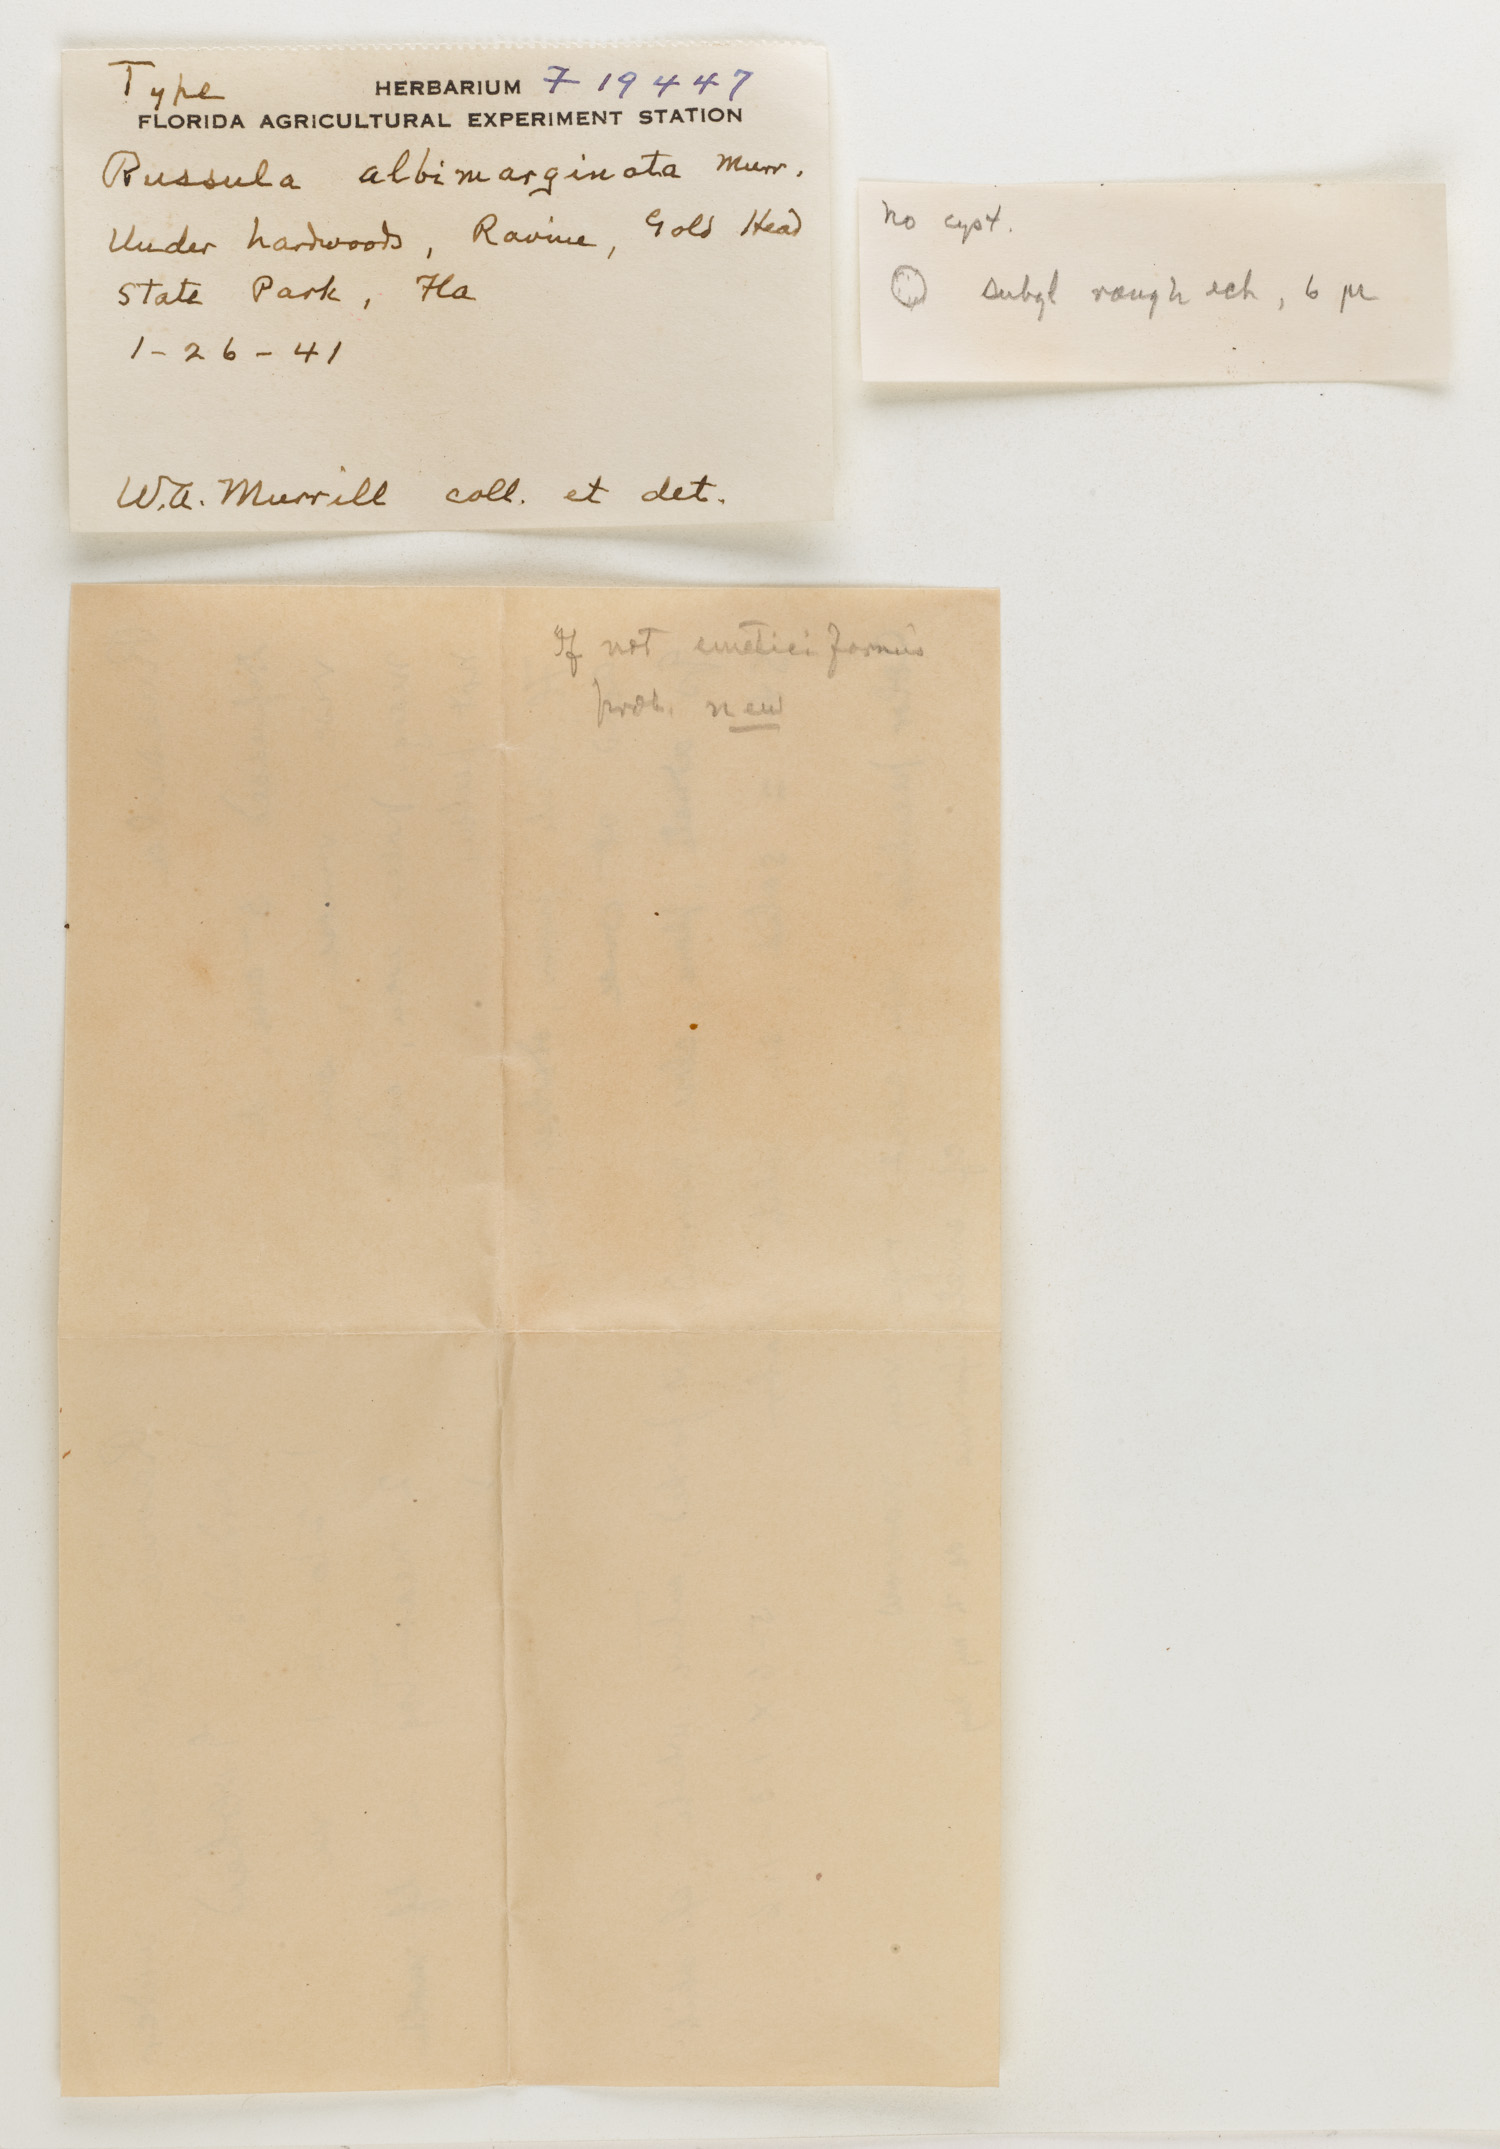 Type HERBARIUM F 19447
FLORIDA AGRICULTURAL EXPERIMENT STATION
Russula albimarginata Murr.
Under hardwoods, Ravine, Gold Head
State Park, Fla
1-26-41
W.A. Murrill coll. et det.
no cyst.
subgl rough ech, 6 μ
If not emeticiformis
prob. new